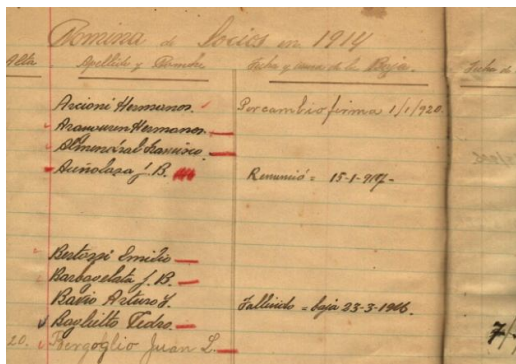 Nómina de Socios en 1914
Alta Apellido y Nombre Fecha y causa de la Baja. Fecha de
Arcioni Hermanos. Por cambio firma 1/1/920.
Aranguren Hermanos.
Almendral Francisco.
J. B. Renunció = 15-1-917-
Bertozzi Emilio
Barbagelata J. B.
Badio Arturo J. Fallecido = baja 23-3-1966.
Baglietto Pedro.
20. Bergoglio Juan L.
7/